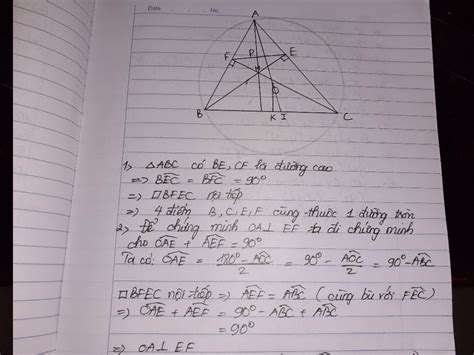 Date
No.
A
F
P
E
H
O
B
K
I
C
1, △ABC có BE, CF là đường cao
=> BÊC = BFC = 90°
=> □BFEC nội tiếp
=> 4 điểm B, C, E, F cùng thuộc 1 đường tròn
2, Để chứng minh OA⊥EF ta đi chứng minh
cho OAE + AEF = 90°
Ta có: OAE = (180° - AOC)/2 = 90° - AOC/2 = 90° - ABC
□BFEC nội tiếp => AEF = ABC (cùng bù với FEC)
=> OAE + AEF = 90° - ABC + ABC
= 90°
=> OA⊥EF